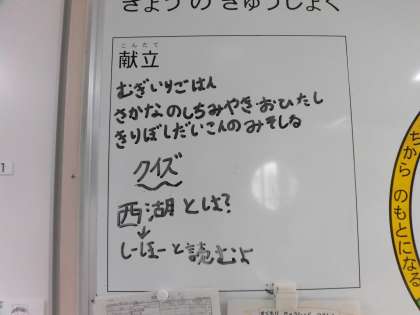 きょうのきゅうしょく
こんだて
献立
むぎいりごはん
さかなのしちみやき おひたし
きりぼしだいこんのみそしる
クイズ
西湖とは?
↓
しーほーと読むよ
ちから のもとになる
1